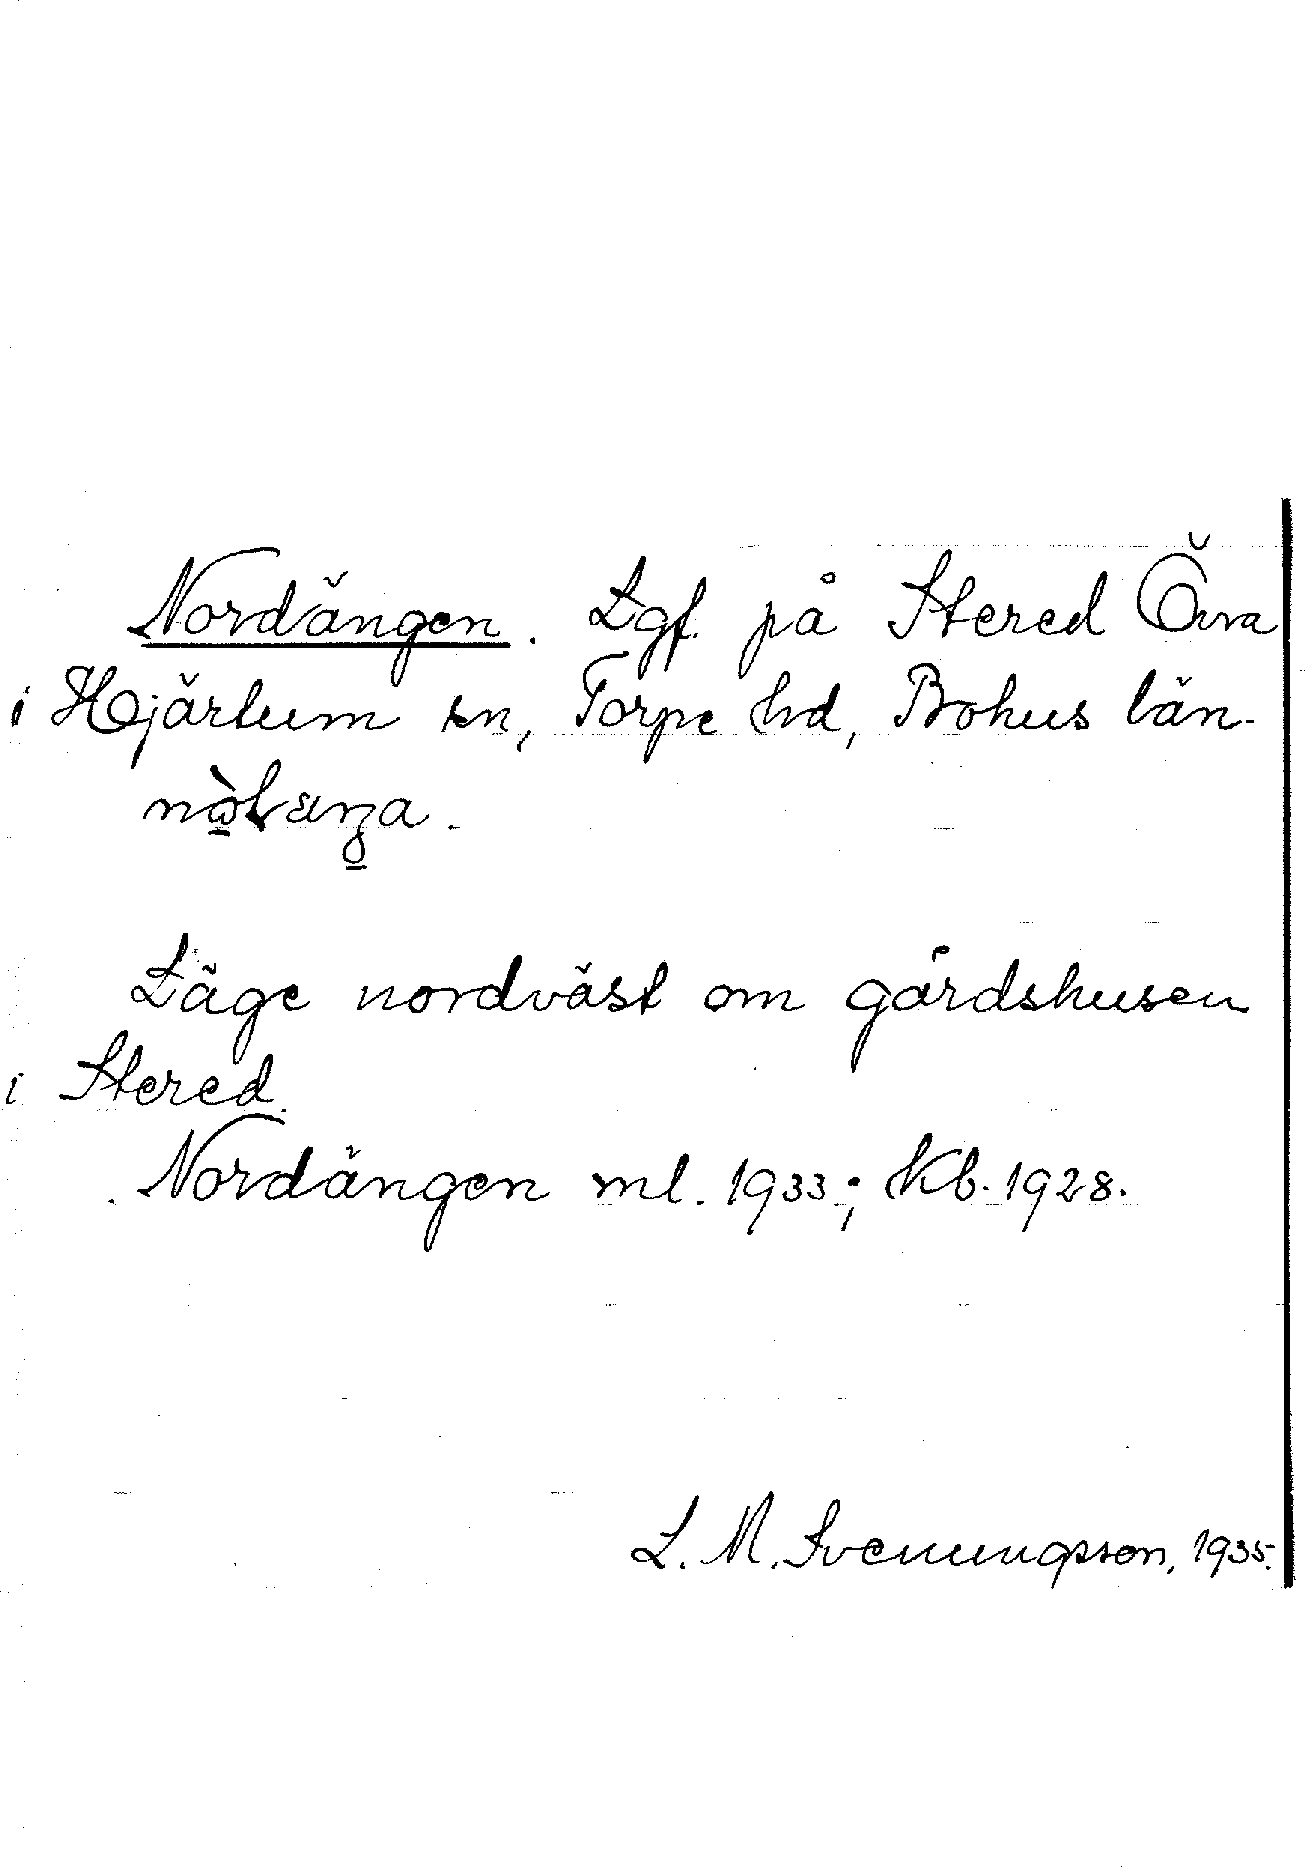 Nordängen. Lgf. på Stered Övra
i Hjärtum sn, Torpe hd, Bohus län.
Läge nordväst om gårdshusen
i Stered.
Nordängen ml. 1933; Kb. 1928.
L. M. Svenungsson, 1935.